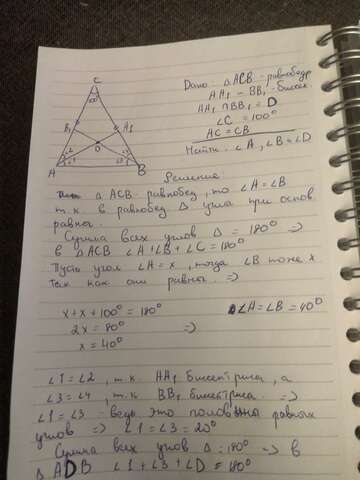 C
100°
B₁
A₁
O
1 2
3 4
A
B
Дано: △ACB - равнобедр
AA₁ - BB₁ - биссек.
AA₁ ∩ BB₁ = D
∠C = 100°
AC = CB
Найти: ∠A, ∠B, ∠D
Решение
△ ACB равнобед, то ∠A = ∠B
т.к. в равнобед. △ угла при основ.
равны.
Сумма всех углов △ = 180° =>
в △ACB ∠A+∠B+∠C = 180°
Пусть угол ∠A = x, тогда ∠B тоже x
так как они равны. =>
x + x + 100° = 180°
∠A = ∠B = 40°
2x = 80° =>
x = 40°
∠1 = ∠2, т.к. AA₁ биссектриса, а
∠3 = ∠4, т.к. BB₁ биссектриса. =>
∠1 = ∠3 - ведь это половины равных
углов => ∠1 = ∠3 = 20°
Сумма всех углов △ = 180° => в
△ ADB ∠1 + ∠3 + ∠D = 180°